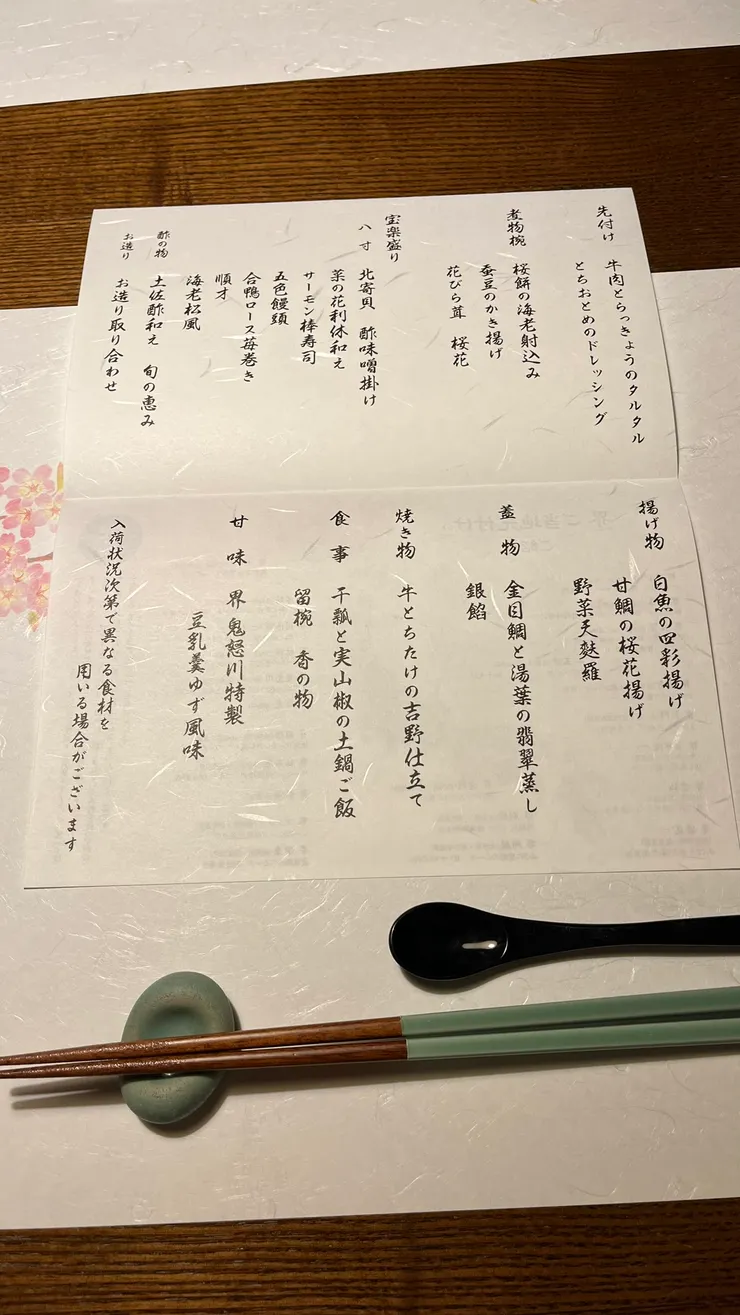 先付け 牛肉とらっきょうのタルタル
とちおとめのドレッシング
煮物椀 桜餅の海老射込み
蚕豆のかき揚げ
花びら茸 桜花
宝楽盛り
八寸 北寄貝 酢味噌掛け
菜の花利休和え
サーモン棒寿司
五色饅頭
合鴨ロース苺巻き
順才
海老松風
酢の物 土佐酢和え 旬の恵み
お造り お造り取り合わせ
揚げ物 白魚の四彩揚げ
甘鯛の桜花揚げ
野菜天麩羅
蓋物 金目鯛と湯葉の翡翠蒸し
銀餡
焼き物 牛とちたけの吉野仕立て
食事 干瓢と実山椒の土鍋ご飯
留椀 香の物
甘味 界鬼怒川特製
豆乳羹ゆず風味
入荷状況次第で異なる食材を
用いる場合がございます